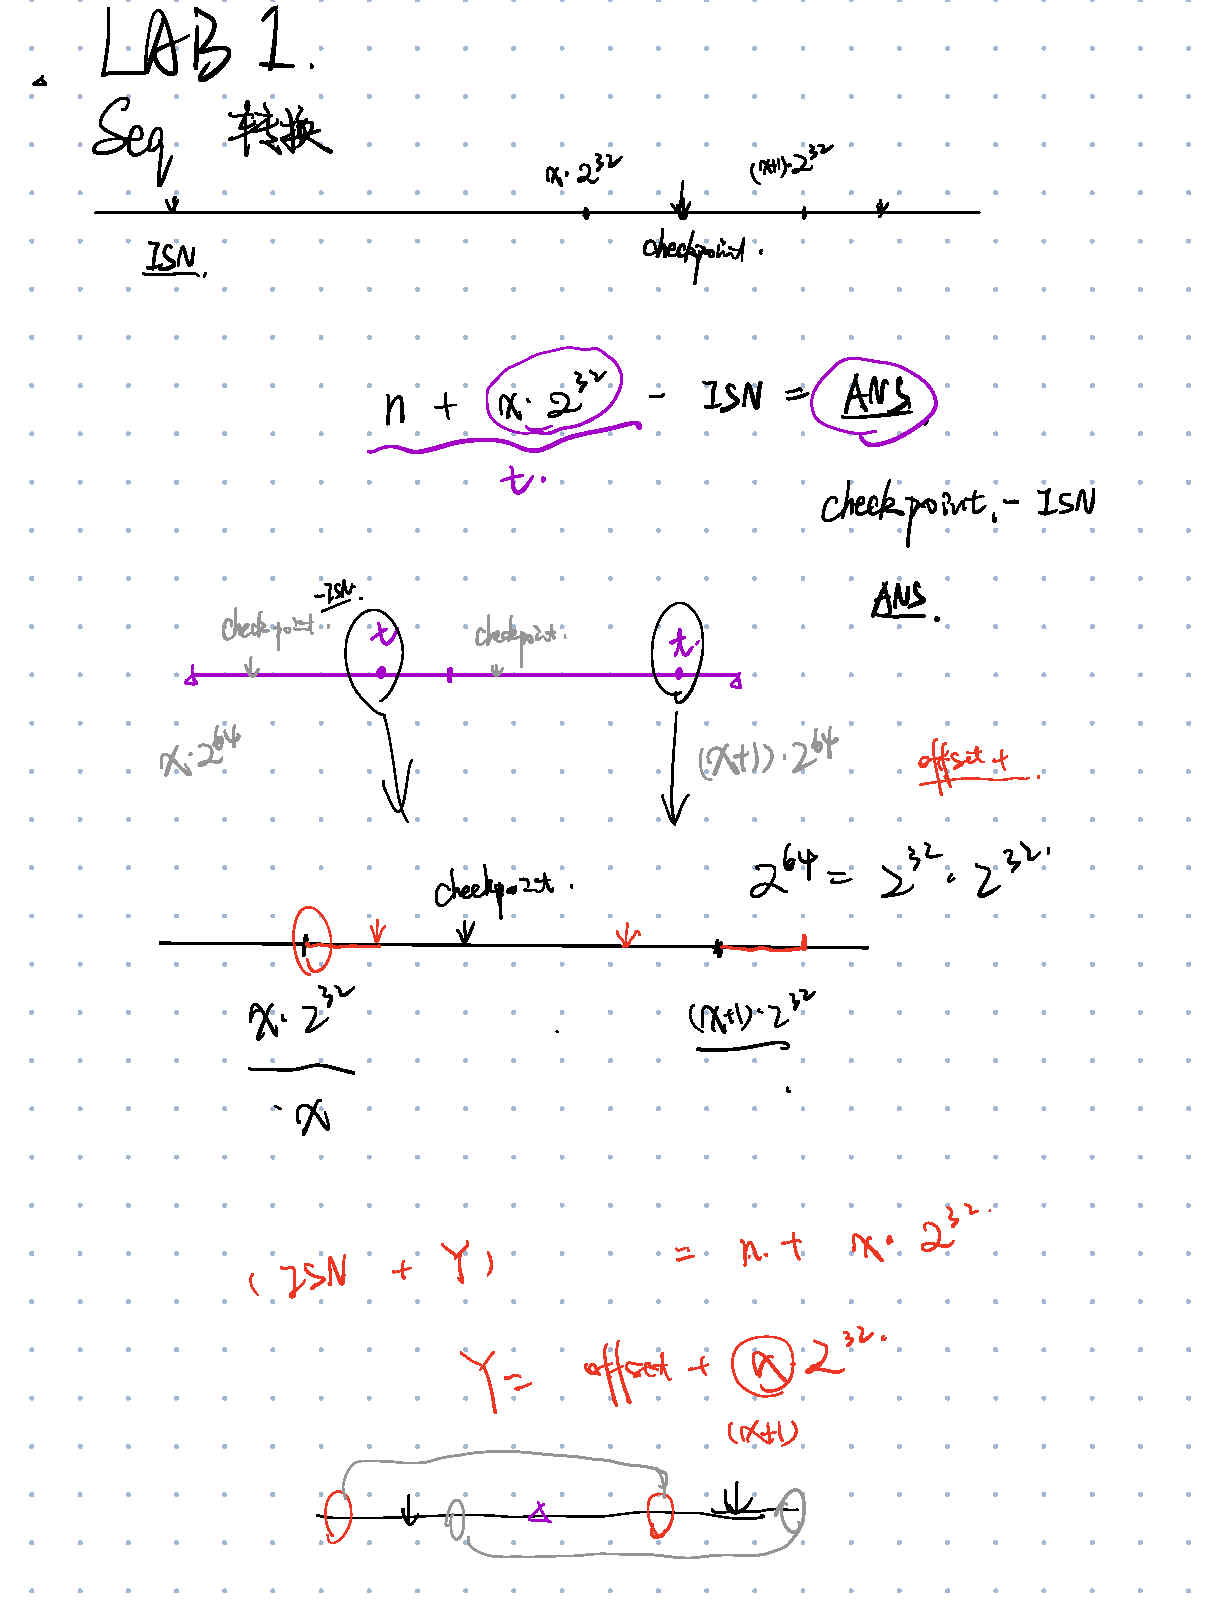 LAB 1.
Seq 转换
x·2^32 (x+1)·2^32
ISN. checkpoint.
n + x·2^32 - ISN = ANS
t.
checkpoint. - ISN
ANS.
-ISN.
checkpoint. t checkpoint. t.
x·2^64 (x+1)·2^64 offset +
2^64 = 2^32 · 2^32.
checkpoint.
x·2^32 (x+1)·2^32
·x
(ISN + Y) = n. + x·2^32.
Y = offset + x 2^32.
(x+1)